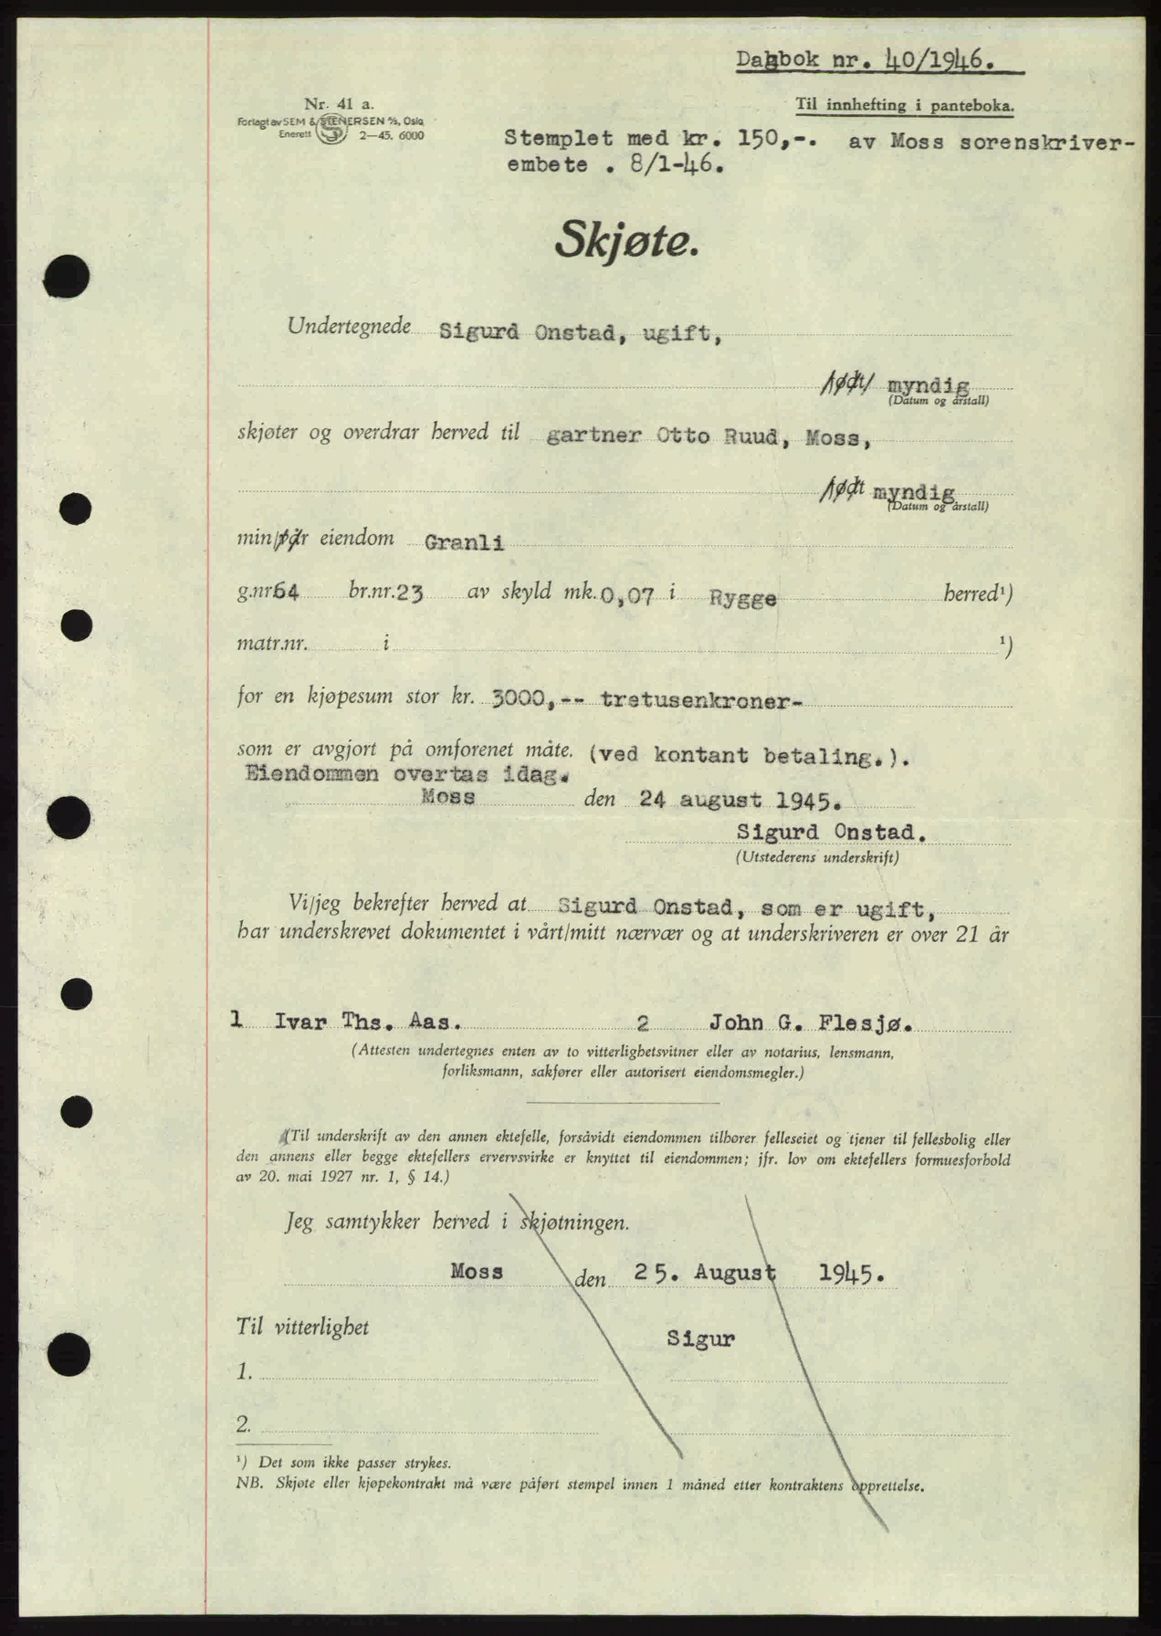 Dagbok nr. 40/1946.
Nr. 41 a.
Til innhefting i panteboka.
Forlagt av SEM & STENERSEN A/S, Oslo
Enerett 2—45. 6000
Stemplet med kr. 150,-. av Moss sorenskriver-
embete . 8/1-46.
Skjøte.
Undertegnede Sigurd Onstad, ugift,
født/ myndig
(Datum og årstall)
skjøter og overdrar herved til gartner Otto Ruud, Moss,
født myndig
(Datum og årstall)
min/vår eiendom Granli
g.nr 64 br.nr. 23 av skyld mk. 0,07 i Rygge herred¹)
matr.nr. i ¹)
for en kjøpesum stor kr. 3000,-- tretusenkroner-
som er avgjort på omforenet måte. (ved kontant betaling.).
Eiendommen overtas idag.
Moss den 24 august 1945.
Sigurd Onstad.
(Utstederens underskrift)
Vi/jeg bekrefter herved at Sigurd Onstad, som er ugift,
har underskrevet dokumentet i vårt/mitt nærvær og at underskriveren er over 21 år
1 Ivar Ths. Aas. 2 John G. Flesjø.
(Attesten undertegnes enten av to vitterlighetsvitner eller av notarius, lensmann,
forliksmann, sakfører eller autorisert eiendomsmegler.)
(Til underskrift av den annen ektefelle, forsåvidt eiendommen tilhører felleseiet og tjener til fellesbolig eller
den annens eller begge ektefellers ervervsvirke er knyttet til eiendommen; jfr. lov om ektefellers formuesforhold
av 20. mai 1927 nr. 1, § 14.)
Jeg samtykker herved i skjøtningen.
Moss den 25. August 1945.
Til vitterlighet
Sigur
1.
2.
¹) Det som ikke passer strykes.
NB. Skjøte eller kjøpekontrakt må være påført stempel innen 1 måned etter kontraktens opprettelse.